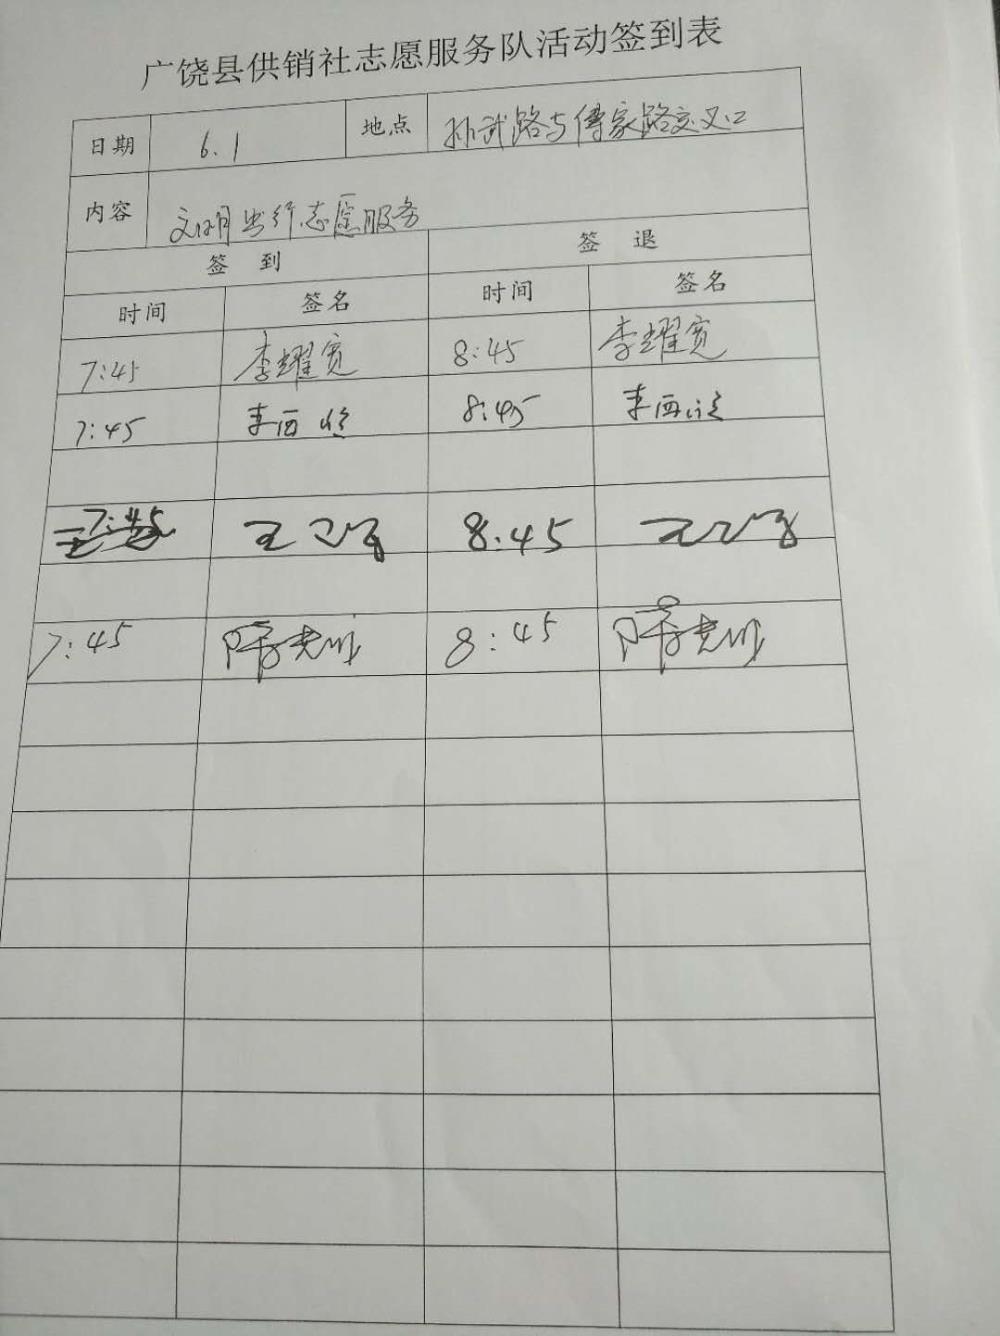 广饶县供销社志愿服务队活动签到表
日期 6.1 地点 孙武路与傅家路交叉口
内容 文明出行志愿服务
签到 签退
时间 签名 时间 签名
7:45 李耀宽 8:45 李耀宽
7:45 李西 8:45 李西
7:45 王 8:45 王
7:45 8:45